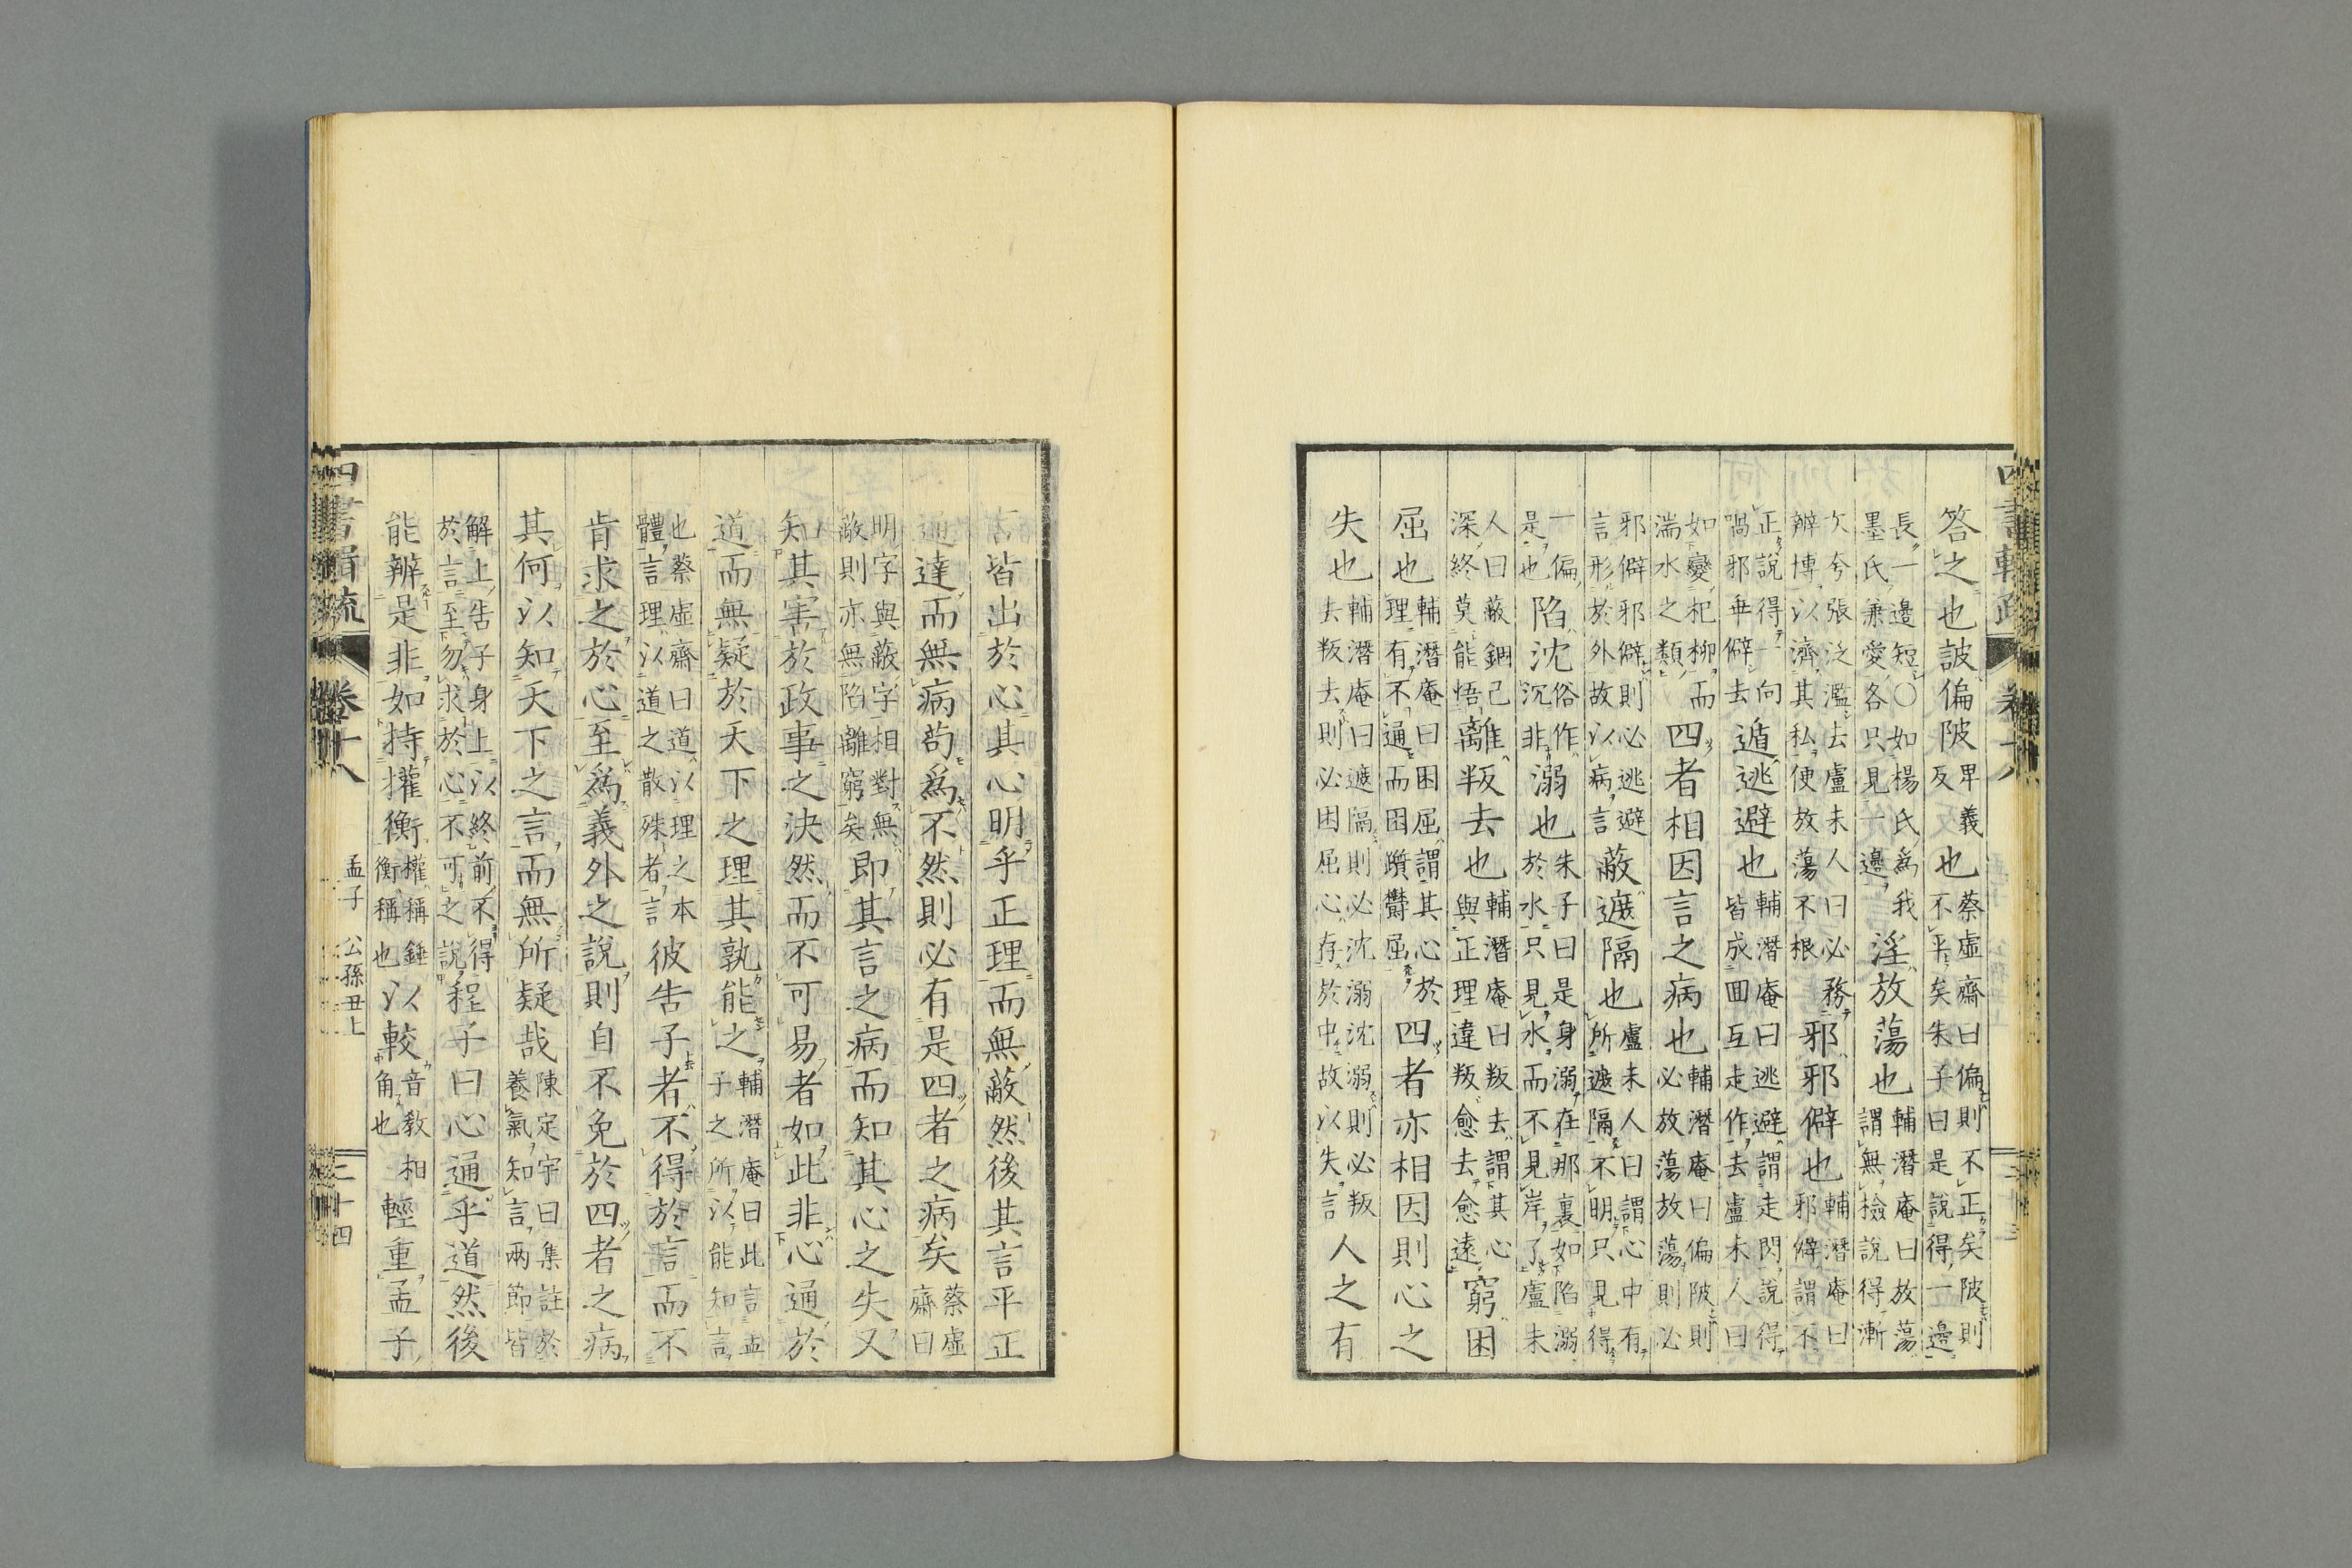 四書輯疏 卷十八
答之也詖偏陂卑義反也蔡虛齋曰偏則不正矣陂則不平矣朱子曰是說得一邊
長一邊短○如楊氏爲我墨氏兼愛各只見一邊淫放蕩也輔潛庵曰放蕩謂無檢說得漸
次夸張泛濫去盧未人曰必務辨博以濟其私使放蕩不根邪邪僻也輔潛庵曰邪僻謂不
正說得一向喎邪乖僻去遁逃避也輔潛庵曰逃避謂走閃說得皆成回互走作去盧未人曰
如變杞柳而湍水之類四者相因言之病也輔潛庵曰偏陂則必放蕩放蕩則必
邪僻邪僻則必逃避言形於外故以病言蔽遮隔也盧未人曰謂心中有所遮隔不明只見得
一偏是也陷沈俗作沉非溺也朱子曰是身溺在那裏如陷溺於水只見水而不見岸了盧未
人曰蔽錮已深終莫能悟離叛去也輔潛庵曰叛去謂其心與正理違叛愈去愈遠窮困
屈也輔潛庵曰困屈謂其心於理有不通而困躓欝屈四者亦相因則心之
失也輔潛庵曰遮隔則必沈溺沈溺則必叛去叛去則必困屈心存於中故以失言人之有
言皆出於心其心明乎正理而無蔽然後其言平正
通達而無病苟爲不然則必有是四者之病矣蔡虛齋曰
明字與蔽字相對無蔽則亦無陷離窮矣即其言之病而知其心之失又
知其害於政事之決然而不可易者如此非心通於
道而無疑於天下之理其孰能之輔潛庵曰此言孟子之所以能知言
也蔡虛齋曰道以理之本體言理以道之散殊者言彼告子者不得於言而不
肯求之於心至爲義外之說則自不免於四者之病
其何以知天下之言而無所疑哉陳定宇曰集註於養氣知言兩節皆
解上告子身上以終前不得於言至勿求於心不可之說程子曰心通乎道然後
能辨是非如持權衡權稱錘衡稱也以較音教角也相輕重孟子
四書輯疏 卷十八 孟子 公孫丑上 二十四